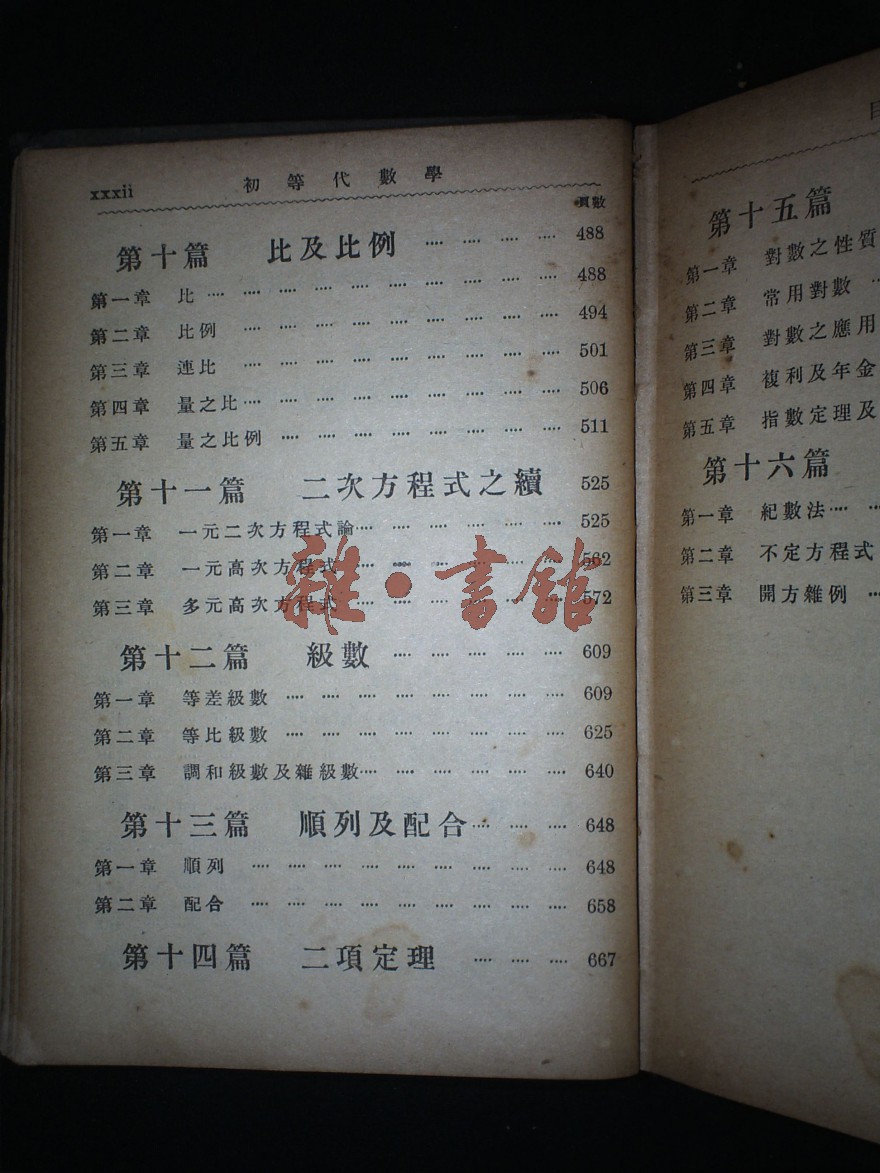 xxxii 初等代數學
頁數
第十篇 比及比例 ···· ···· ···· ···· 488
第一章 比 ···· ···· ···· ···· ···· ···· ···· ···· ···· ···· 488
第二章 比例 ···· ···· ···· ···· ···· ···· ···· ···· ···· 494
第三章 連比 ···· ···· ···· ···· ···· ···· ···· ···· ···· 501
第四章 量之比 ···· ···· ···· ···· ···· ···· ···· ···· ···· 506
第五章 量之比例 ···· ···· ···· ···· ···· ···· ···· ···· 511
第十一篇 二次方程式之續 525
第一章 一元二次方程式論 ···· ···· ···· ···· ···· ···· 525
第二章 一元高次方程式 ···· ···· ···· ···· ···· ···· 562
第三章 多元高次方程式 ···· ···· ···· ···· ···· ···· 572
雜·書館
第十二篇 級數 ···· ···· ···· ···· ···· 609
第一章 等差級數 ···· ···· ···· ···· ···· ···· ···· ···· 609
第二章 等比級數 ···· ···· ···· ···· ···· ···· ···· ···· 625
第三章 調和級數及雜級數 ···· ···· ···· ···· ···· ···· 640
第十三篇 順列及配合 ···· ···· ···· 648
第一章 順列 ···· ···· ···· ···· ···· ···· ···· ···· ···· 648
第二章 配合 ···· ···· ···· ···· ···· ···· ···· ···· ···· 658
第十四篇 二項定理 ···· ···· ···· 667
目
第十五篇
第一章 對數之性質
第二章 常用對數
第三章 對數之應用
第四章 複利及年金
第五章 指數定理及
第十六篇
第一章 紀數法 ····
第二章 不定方程式
第三章 開方雜例